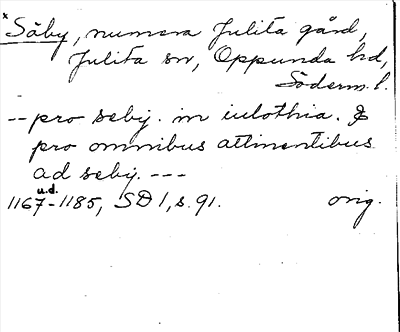 * Säby, numera Julita gård,
Julita sn, Oppunda hd,
Söderm. l.
-- pro sebij. in iulothia. &
pro omnibus attinentibus
ad sebij. ---
u.d.
1167-1185, SD 1, s. 91. orig.